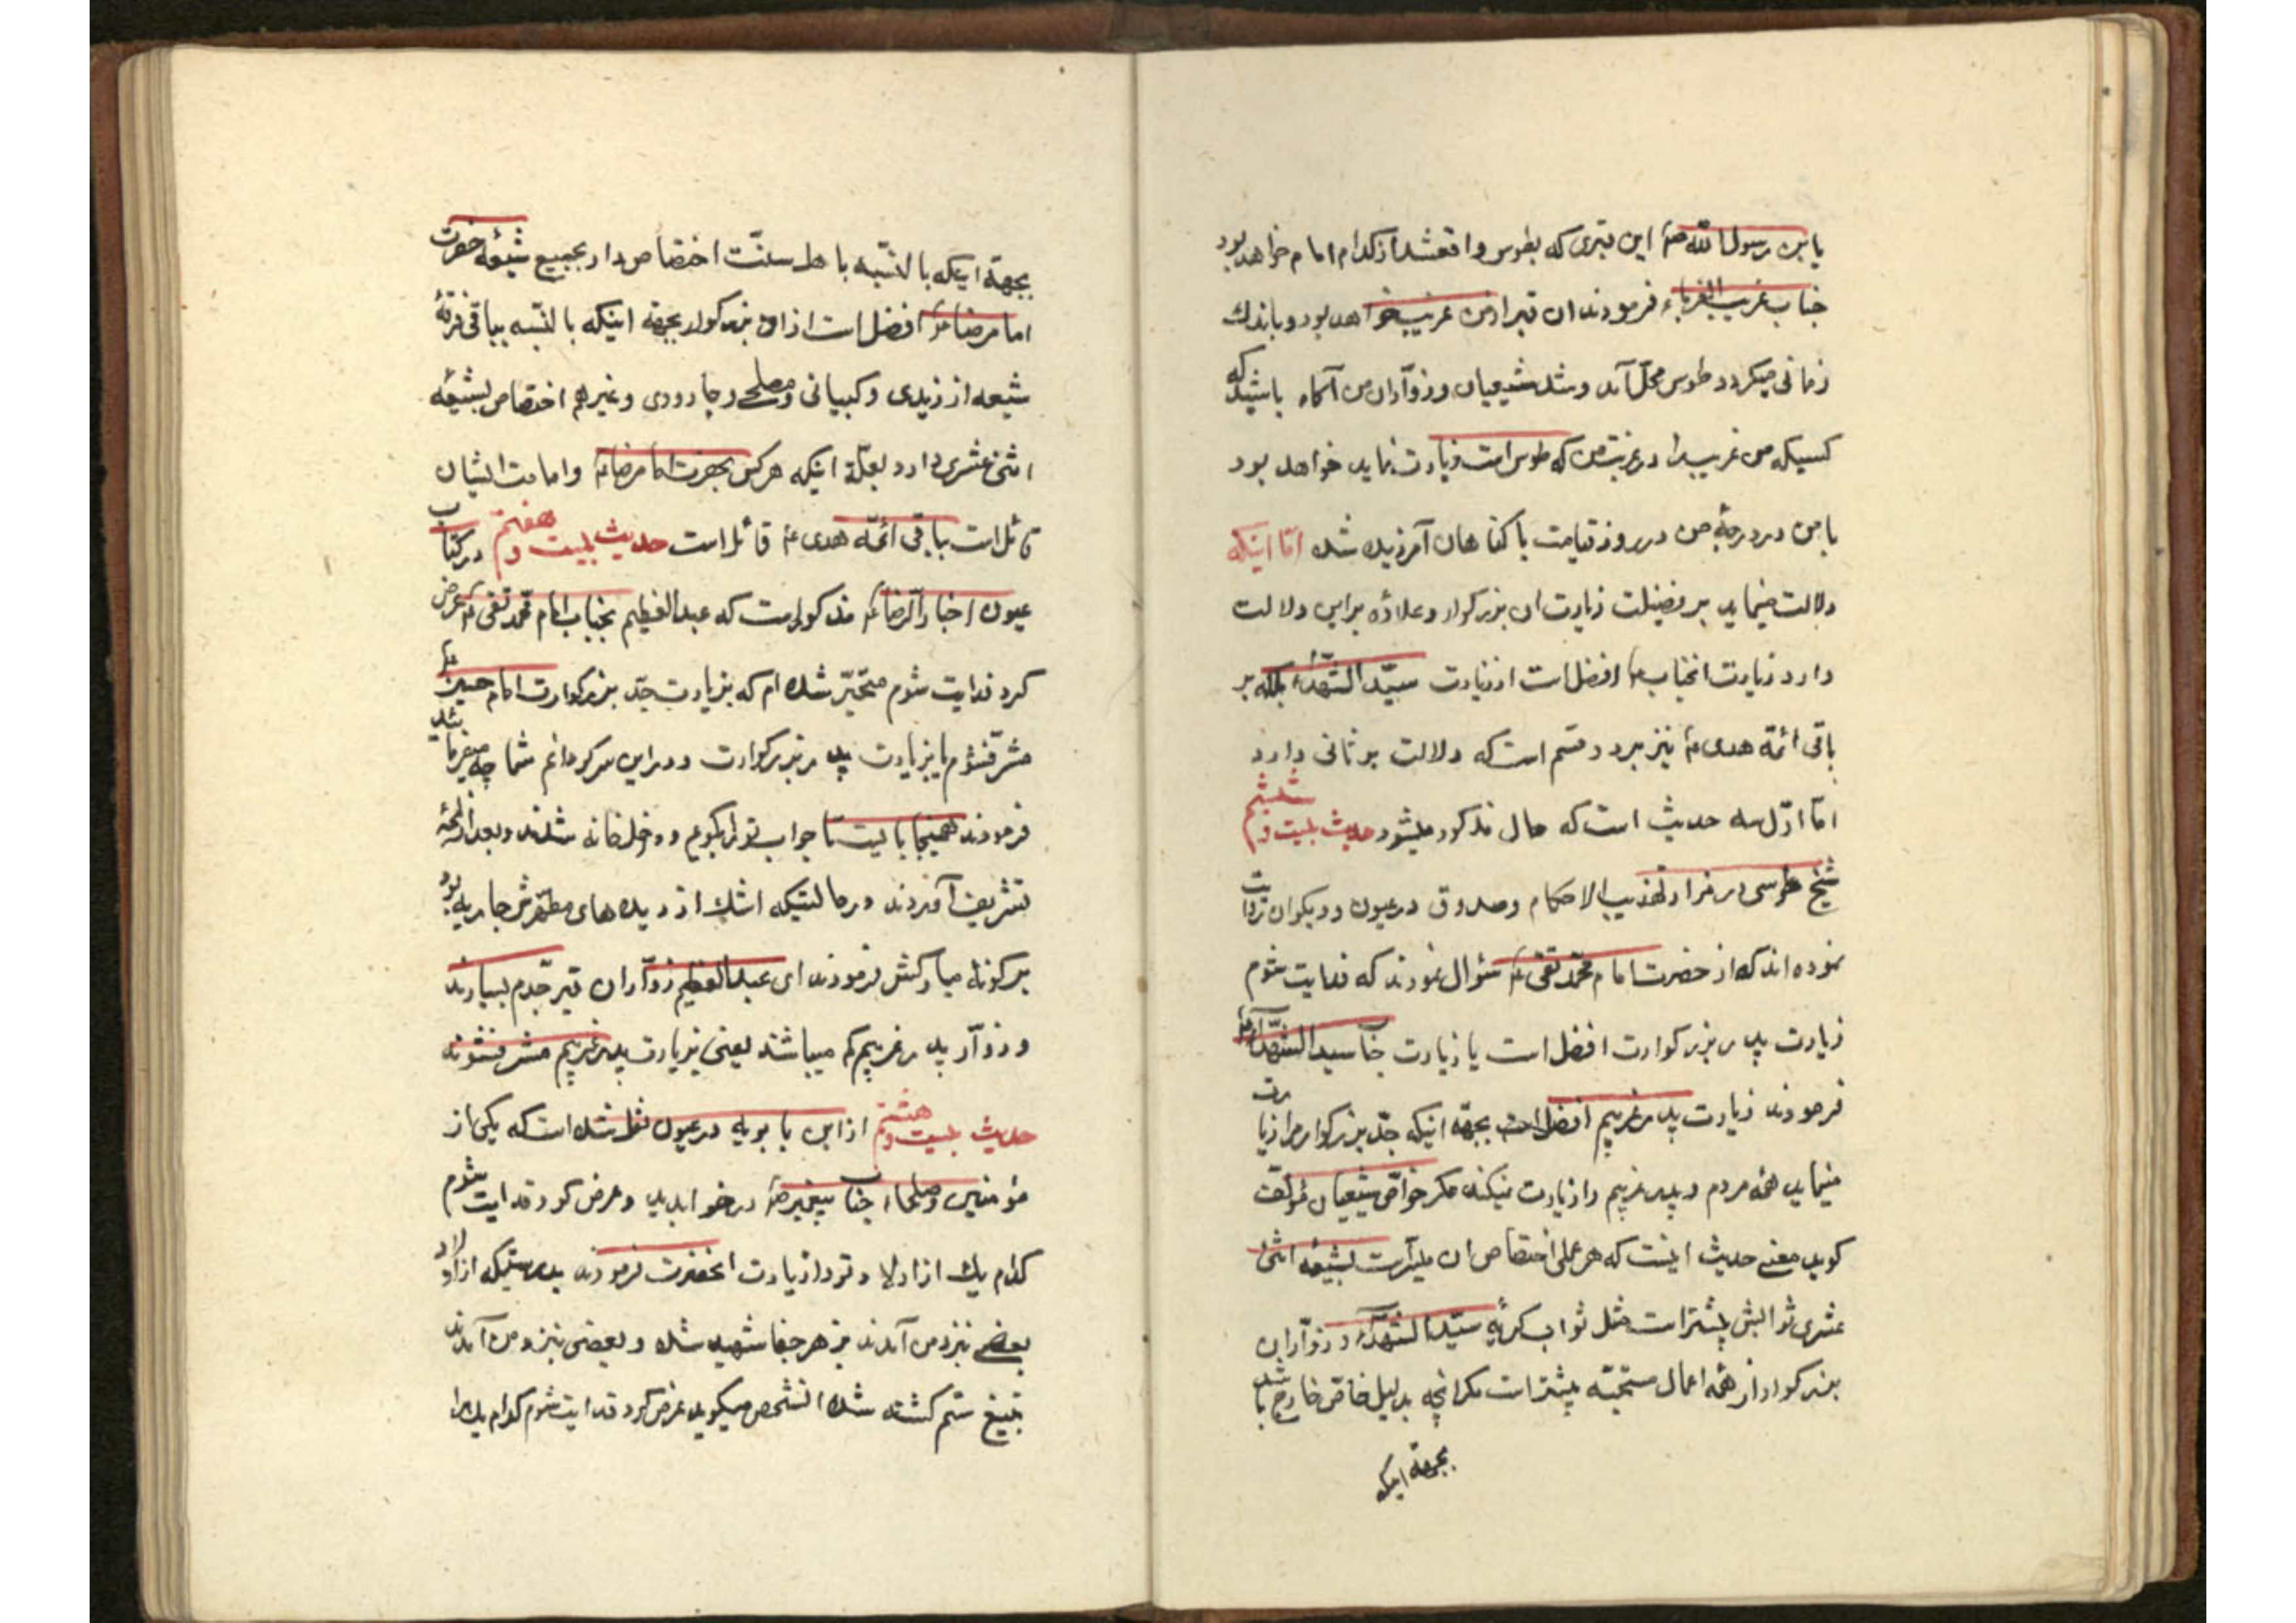 یابن رسول الله ص این قبری که بطوس واقعشد از کدام امام خواهد بود
جناب غریب الغرباء فرمودند ان قبر از من غریب خواهد بود و باندك
زمانی میکردد طوس محل آمد و شد شیعیان و زوّاران من آکاه باشید که
کسیکه من غریب را در غربت من که طوس است زیارت نماید خواهد بود
با من در درجهٔ من در روز قیامت با کناهان آمرزیده شده امّا اینکه
دلالت مینماید بر فضیلت زیارت ان بزرکوار و علاوه بر این دلالت
دارد زیارت انجناب ع افضل است از زیارت سیّد الشّهداء بلکه بر
باقی ائمّه هدی ع نیز بر دو قسم است که دلالت بر ثانی دارد
امّا اوّل سه حدیث است که حال مذکور میشود حدیث بیست و ششم
شیخ طوسی در مزار تهذیب الاحکام و صدوق در عیون و دیکران روایت
نموده اند که از حضرت امام محمّد تقی ع سؤال نمودند که فدایت شوم
زیارت پدر بزرکوارت افضل است یا زیارت جناب سید الشّهداء ع
فرمودند زیارت پدر غریبم افضل است بجهّة اینکه جدّ بزرکوارم را زیارت
مینماید همه مردم و پدر غریبم را زیارت نمیکند مکر خواصّ شیعیان مؤلّف
کوید معنی حدیث اینست که هر عملی اختصاص ان بشیعه اثنی
عشری ثوابش بیشتر است مثل ثواب کریهٔ سیّد الشّهداء و زوّاران
بزرکوار از همه اعمال مستحبّه بیشتر است مکر انچه بدلیل خاصّ خارج باشد
بجهة اینکه
بجهة اینکه بالنّسبه باهل سنّت اختصاص دارد بجمیع شیعه حضرت
امام رضا ع افضل است از ان بزرکوار بجهة اینکه بالنّسبه بباقی فرقهٔ
شیعه از زیدی و کیسانی و جارودی و غیرهم اختصاص بشیعهٔ
اثنی عشری دارد بعلّة اینکه هر کس بحضرت امام رضا ع و امامت ایشان
قائل است بباقی ائمّه هدی ع قائل است حدیث بیست و هفتم در کتاب
عیون اخبار الرّضا ع مذکور است که عبد العظیم بجناب امام محمّد تقی ع عرض
کرد فدایت شوم متحیّر شده ام که بزیارت جدّ بزرکوارت امام حسین ع
مشرّف شوم یا بزیارت پدر بزرکوارت و در این سرکردانم شما چه میفرمائید
فرمودند همینجا بایست تا جواب تو را بکویم و داخل خانه شدند و بعد از لمحهٔ
تشریف آوردند در حالتیکه اشك از دیده های مطهّرش جاریه بود
بر کونهٔ مبارکش فرمودند ای عبد العظیم زوّاران قبر جدّم بسیارند
و زوّار پدر غریبم کم میباشند یعنی بزیارت پدر غریبم مشرف نشوند
حدیث بیست و هشتم از ابن بابویه در عیون نقل شده است که یکی از
مؤمنین و صلحاء جناب پیغمبر ص را در خواب دید و عرض کرد فدایت شوم
کدام یك از اولاد تو را زیارت انحضرت فرمودند بدرستیکه از اولاد
بعضی نزد من آمدند بزهر جفا شهید شده و بعضی نزد من آمدند
بتیغ ستم کشته شده انشخص میکوید عرض کرد فدایت شوم کدام یك را